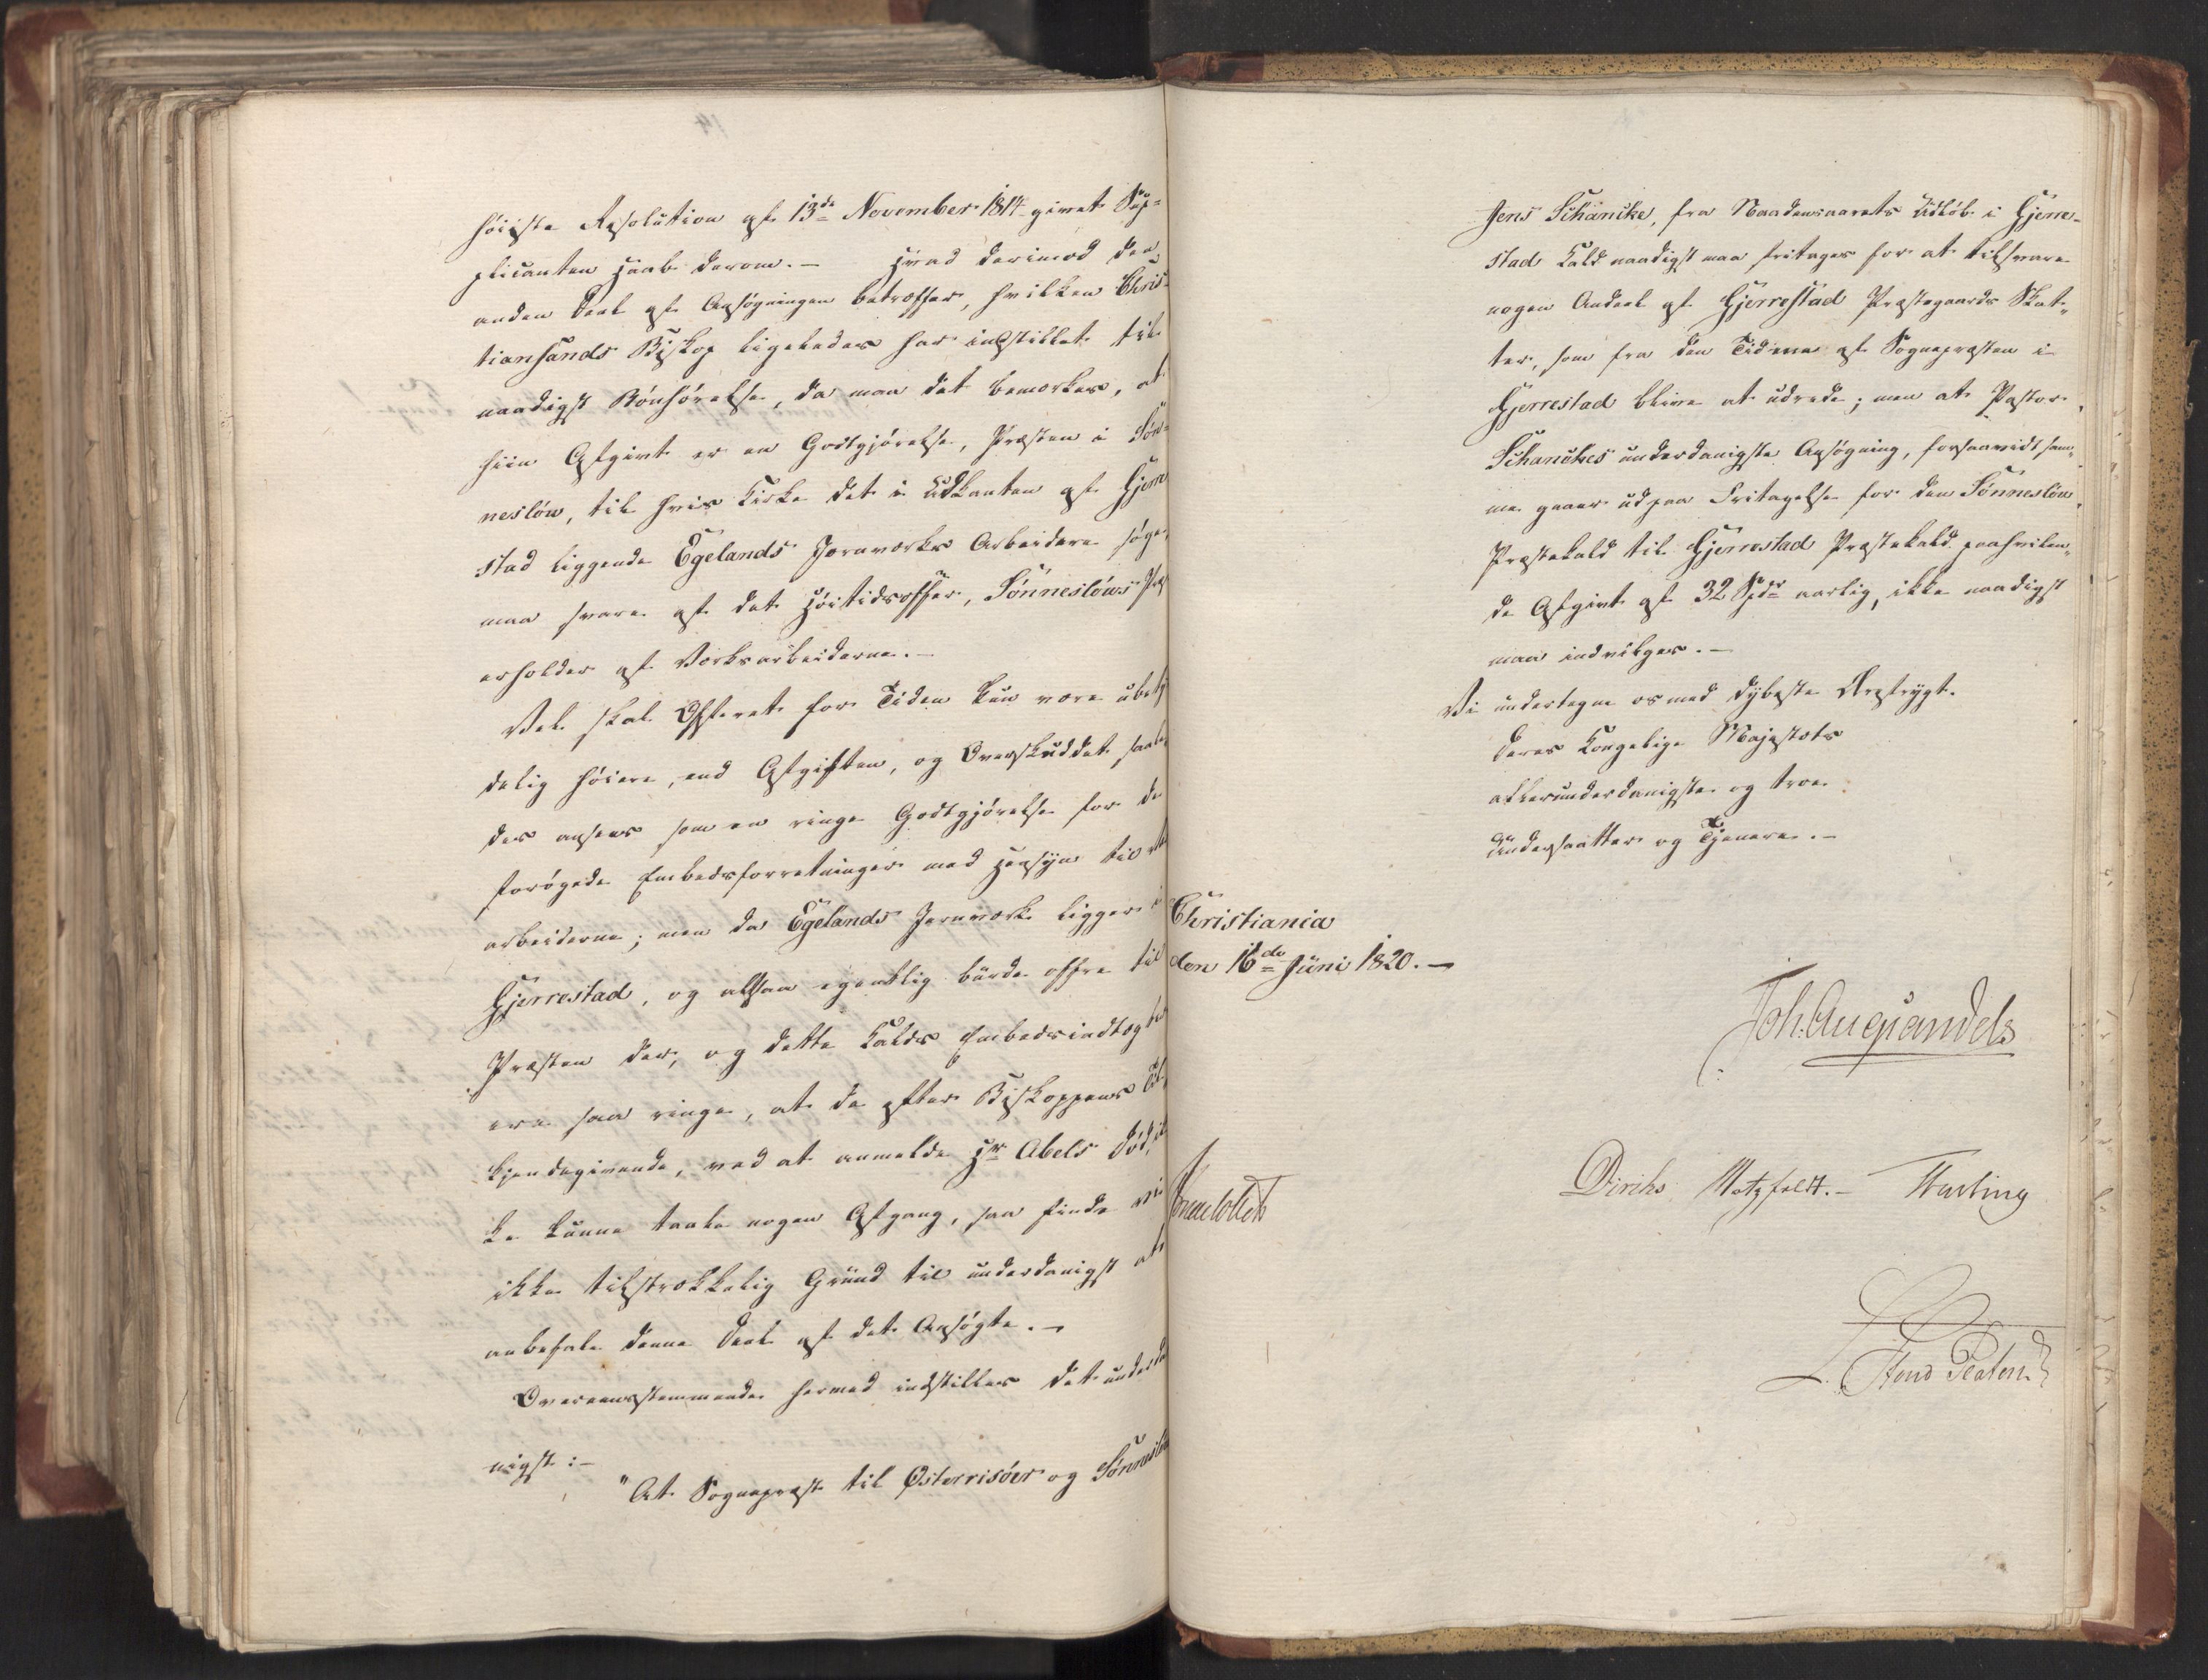 höieste Resolution af 13de November 1814 givet Sup=
plicanten Haab derom. – Hvad derimod den
anden Deel af Ansøgningen betræffer, hvilken Chris=
tiansands Biskop ligeledes har indstillet til
naadigst Bønhørelse, da maa det bemærkes, at
hiin Afgivt er en Godtgjørelse, Præsten i Søn=
neslöw, til hvis Kirke det i Udkanten af Gjerre
stad liggende Egelands Jernværks Arbeidere søge,
maa svare af det Høitidsoffer, Sönneslöws Præst
erholder af Værksarbeiderne. –
Vel skal Offeret for Tiden kun være ubety
delig høiere, end Afgiften, og Overskuddet saale
des ansees som en ringe Godtgjørelse for de
forøgede Embedsforretninger med Hensyn til
arbeiderne; men da Egelands Jernværk ligger i
Gjerrestad, og altsaa egentlig burde offre til
Præsten der, og dette Kalds Embedsindtægter
ere saa ringe, at de efter Biskoppens Til
kjendegivende, ved at anmelde Hr Abels Död, ik
ke kunne taale nogen Afgang, saa finde vi
ikke tilstrækkelig Grund til underdanigst at
anbefale denne Deel af det Ansøgte. –
Overeensstemmende hermed indstilles det underda
nigst: –
"At Sognepræst til Österrisöer og Sönneslöw
Jens Schancke, fra Naadensaarets Udløb i Gjerre=
stad Kald naadigst maa fritages for at tilsvare
nogen Andeel af Gjerrestad Præstegaards Skat=
ter, som fra den Tid af Sognepræsten i
Gjerrestad blive at udrede; men at Pastor
Schanckes underdanigste Ansøgning, forsaavidt sam=
me gaaer ud paa Fritagelse for den Sönneslöw
Præstekald til Gjerrestad Præstekald paahvilen=
de Afgivt af 32 Spdr aarlig, ikke naadigst
maa indvilges. –
Vi undertegne os med dybeste Ærefrygt.
Deres Kongelige Majestæts
allerunderdanigste og troe
Undersaatter og Tjenere. –
Christiania
den 16de Juni 1820. –
Joh. Aug Sandels
Diriks Motzfeldt. – Treschow
Sommelfeldt